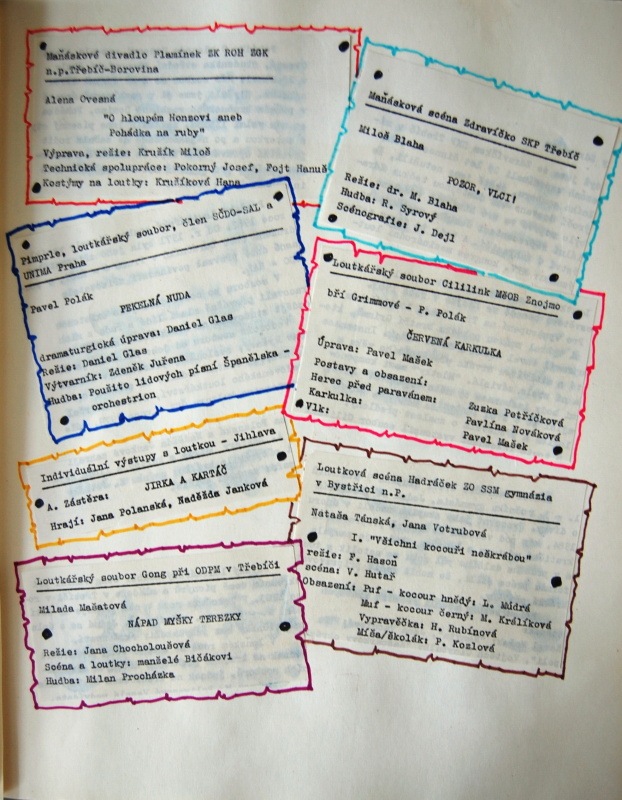 Maňáskové divadlo Plamínek ZK ROH ZGK
n.p.Třebíč-Borovina
Alena Ovesná
"O hloupém Honzovi aneb
Pohádka na ruby"
Výprava, režie: Kružík Miloš
Technická spolupráce: Pokorný Josef, Fojt Hanuš
Kostýmy na loutky: Kružíková Hana
Maňásková scéna Zdravíčko SKP Třebíč
Miloš Blaha
POZOR, VLCI!
Režie: dr. M. Blaha
Hudba: R. Syrový
Scénografie: J. Dejl
Pimprle, loutkářský soubor, člen SČDO-SAL a
UNIMA Praha
Pavel Polák
PEKELNÁ NUDA
dramaturgická úprava: Daniel Glas
Režie: Daniel Glas
Výtvarník: Zdeněk Juřena
Hudba: Použito lidových písní Španělska -
orchestrion
Loutkářský soubor Cililink MěOB Znojmo
bří Grimmové - P. Polák
ČERVENÁ KARKULKA
Úprava: Pavel Mašek
Postavy a obsazení:
Herec před paravánem: Zuzka Petříčková
Karkulka: Pavlína Nováková
Vlk: Pavel Mašek
Individuální výstupy s loutkou - Jihlava
A. Zástěra: JIRKA A KARTÁČ
Hrají: Jana Polanská, Naděžda Janková
Loutková scéna Hadráček ZO SSM gymnázia
v Bystřici n.P.
Nataša Tánská, Jana Votrubová
I. "Všichni kocouři neškrábou"
režie: P. Hasoň
scéna: V. Hutař
Obsazení: Puf - kocour hnědý: L. Múdrá
Muf - kocour černý: M. Králíková
Vypravěčka: H. Rubínová
Míša/školák: P. Kozlová
Loutkářský soubor Gong při ODPM v Třebíči
Milada Mašatová
NÁPAD MYŠKY TEREZKY
Režie: Jana Chocholoušová
Scéna a loutky: manželé Bičákovi
Hudba: Milan Procházka